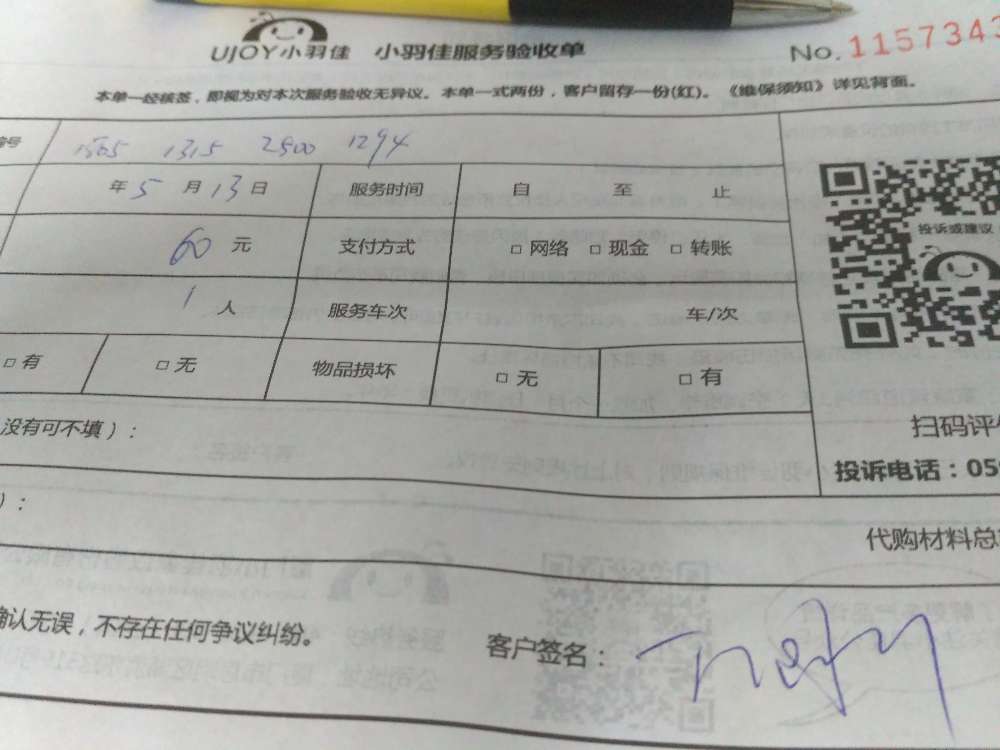 UJOY小羽佳 小羽佳服务验收单 No. 1157343
本单一经核签，即视为对本次服务验收无异议。本单一式两份，客户留存一份(红)。《维保须知》详见背面。
编号 1565 1315 2500 1294
年5月13日 服务时间 自 至 止
投诉或建议
60元 支付方式 □网络 □现金 □转账
1人 服务车次 车/次
□有 □无 物品损坏 □无 □有
没有可不填）：
扫码评价
投诉电话：059
）：
代购材料总
确认无误，不存在任何争议纠纷。
客户签名：